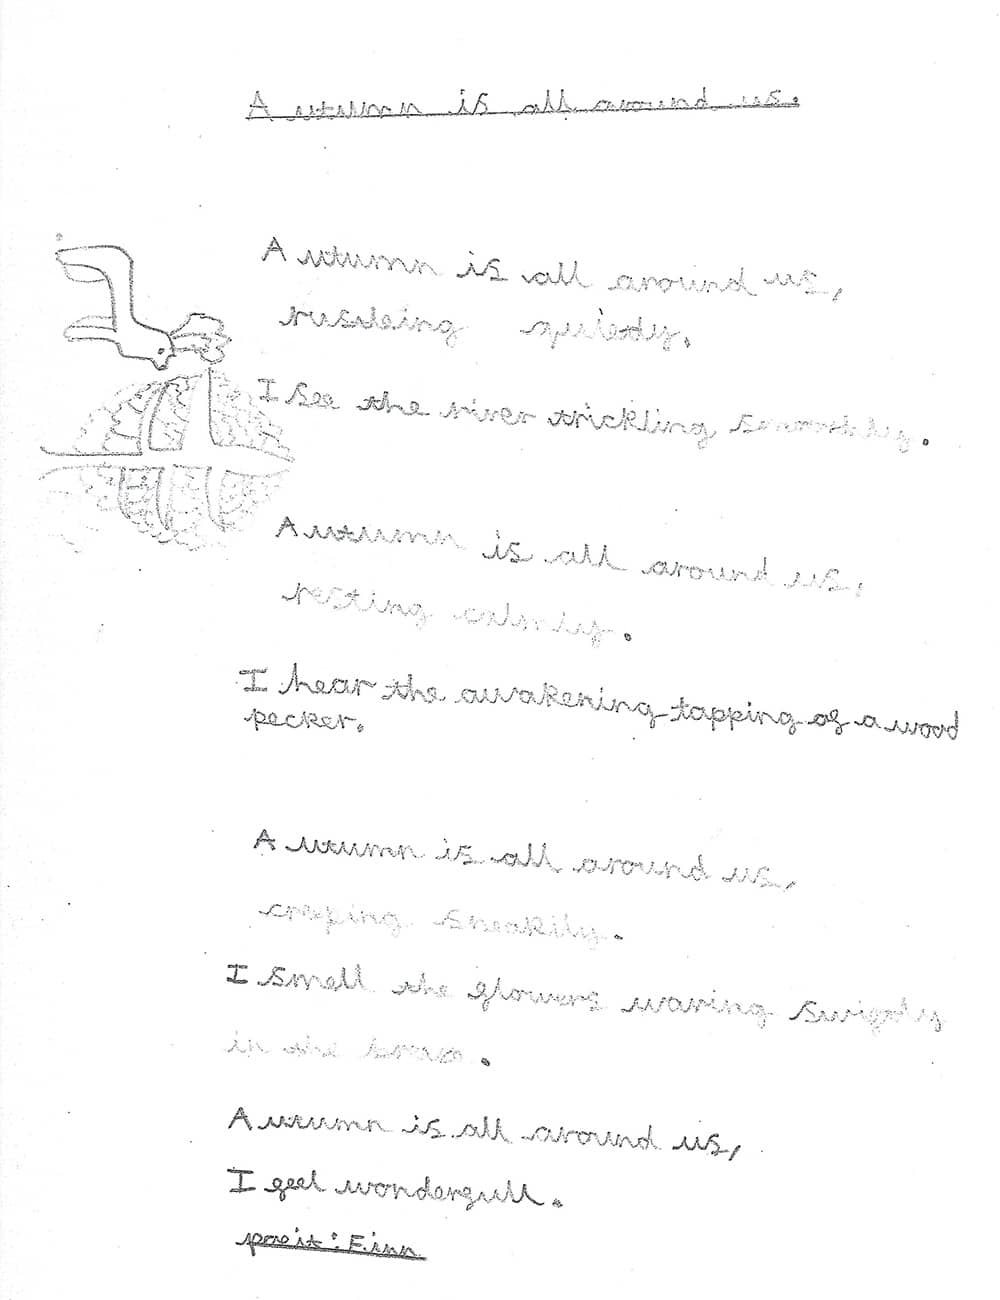 Autumn is all around us.
Autumn is all around us,
rusdeing quietly.
I see the river trickling smoothly.
Autumn is all around us,
resting calmly.
I hear the awakening tapping of a wood
pecker.
Autumn is all around us,
creping sneakily.
I smell the flowers waving swiftly
in the
Autumn is all around us,
I feel wonderfull.
poeit: Finn